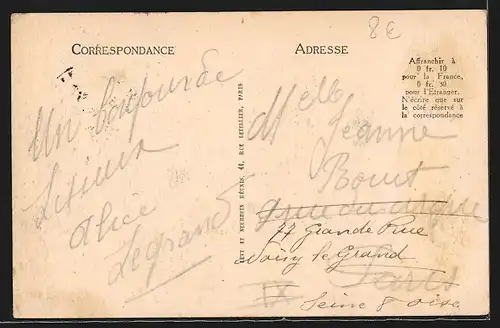 8€
CORRESPONDANCE
ADRESSE
Affranchir à
0 fr. 10
pour la France,
0 fr. 30
pour l'Etranger.
N'écrire que sur
le côté réservé à
la correspondance
Un bonjour de
Lisieux
Alice
Legrand
LEVY ET NEURDEIN RÉUNIS, 44, RUE LETELLIER, PARIS
Melle
Jeanne
rue du
77 Grande Rue
Noisy le Grand
Paris
IX
Seine & oise